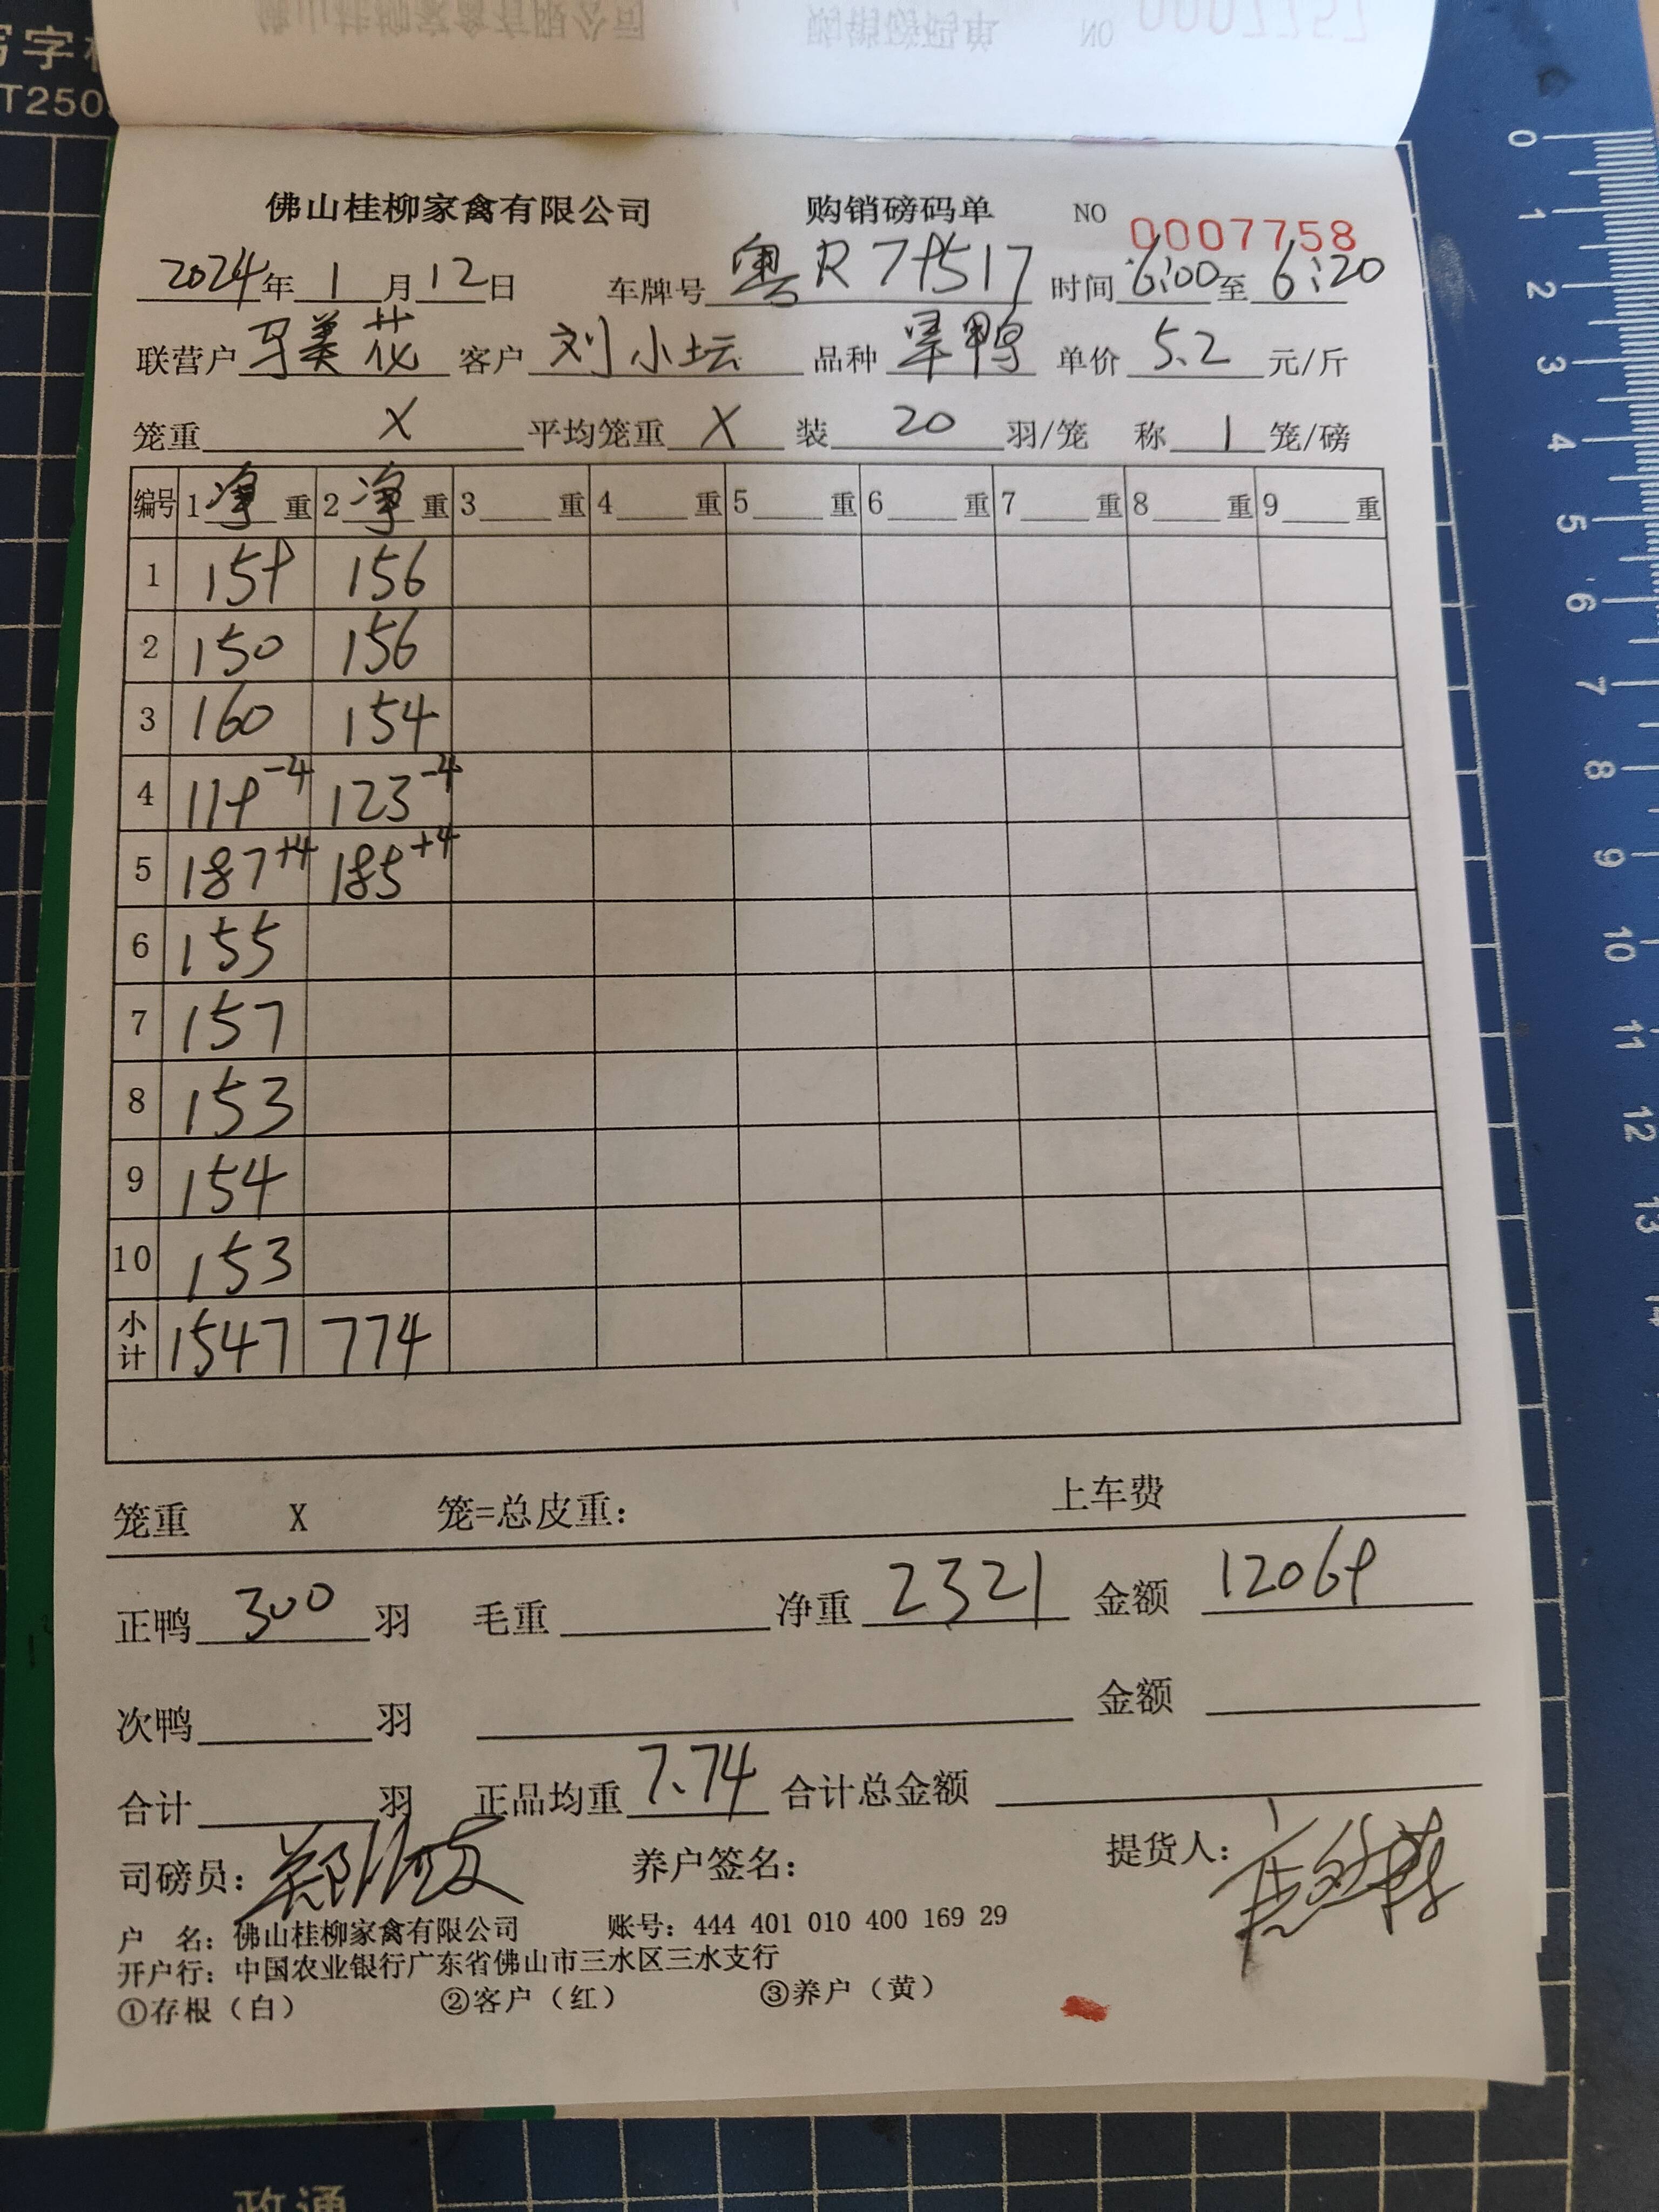 T250
佛山桂柳家禽有限公司 购销磅码单 NO 0007758
2024年 1 月 12 日 车牌号 粤R 79517 时间 6:00 至 6:20
联营户 马美花 客户 刘小坛 品种 旱鸭 单价 5.2 元/斤
笼重 X 平均笼重 X 装 20 羽/笼 称 1 笼/磅
编号 1 净 重 2 净 重 3 重 4 重 5 重 6 重 7 重 8 重 9 重
1 159 156
2 150 156
3 160 154
4 119-4 123-4
5 187+4 185+4
6 155
7 157
8 153
9 154
10 153
小计 1547 774
笼重 X 笼=总皮重: 上车费
正鸭 300 羽 毛重 净重 2321 金额 12069
次鸭 羽 金额
合计 羽 正品均重 7.74 合计总金额
司磅员: 养户签名: 提货人:
户 名: 佛山桂柳家禽有限公司 账号: 444 401 010 400 169 29
开户行: 中国农业银行广东省佛山市三水区三水支行
①存根（白） ②客户（红） ③养户（黄）
0
1
2
3
4
5
6
7
8
9
10
11
12
13
14
政通